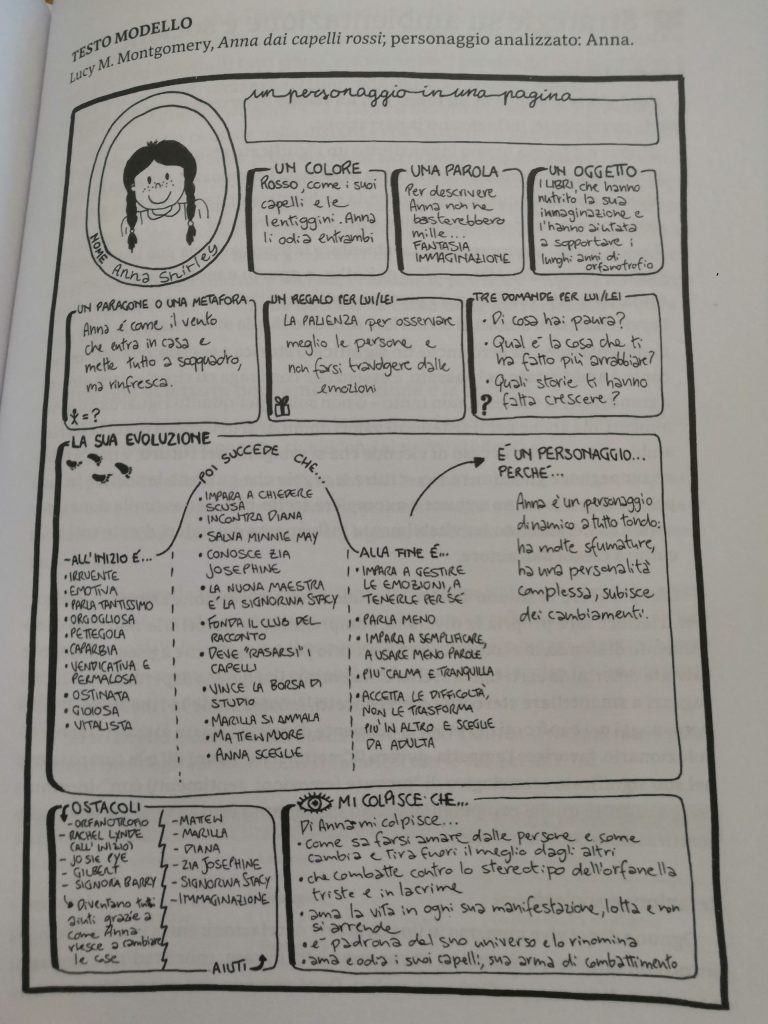 TESTO MODELLO
Lucy M. Montgomery, Anna dai capelli rossi; personaggio analizzato: Anna.
un personaggio in una pagina
NOME Anna Shirley
UN COLORE
Rosso, come i suoi
capelli e le
lentiggini. Anna
li odia entrambi
UNA PAROLA
Per descrivere
Anna non ne
basterebbero
mille...
FANTASIA
IMMAGINAZIONE
UN OGGETTO
I LIBRI, che hanno
nutrito la sua
immaginazione e
l'hanno aiutata
a sopportare i
lunghi anni di
orfanotrofio
UN PARAGONE O UNA METAFORA
Anna è come il vento
che entra in casa e
mette tutto a soqquadro,
ma rinfresca.
= ?
UN REGALO PER LUI/LEI
LA PAZIENZA per osservare
meglio le persone e
non farsi travolgere dalle
emozioni
TRE DOMANDE PER LUI/LEI
• Di cosa hai paura?
• Qual è la cosa che ti
ha fatto più arrabbiare?
• Quali storie ti hanno
fatta crescere?
?
LA SUA EVOLUZIONE
-ALL'INIZIO È...
• IRRUENTE
• EMOTIVA
• PARLA TANTISSIMO
• ORGOGLIOSA
• PETTEGOLA
• CAPARBIA
• VENDICATIVA E
PERMALOSA
• OSTINATA
• GIOIOSA
• VITALISTA
POI SUCCEDE CHE...
• IMPARA A CHIEDERE
SCUSA
• INCONTRA DIANA
• SALVA MINNIE MAY
• CONOSCE ZIA
JOSEPHINE
• LA NUOVA MAESTRA
È LA SIGNORINA STACY
• FONDA IL CLUB DEL
RACCONTO
• DEVE "RASARSI" I
CAPELLI
• VINCE LA BORSA DI
STUDIO
• MARILLA SI AMMALA
• MATTEW MUORE
• ANNA SCEGLIE
ALLA FINE È...
• IMPARA A GESTIRE
LE EMOZIONI, A
TENERLE PER SÉ
• PARLA MENO
• IMPARA A SEMPLIFICARE,
A USARE MENO PAROLE
• PIÙ CALMA E TRANQUILLA
• ACCETTA LE DIFFICOLTÀ,
NON LE TRASFORMA
PIÙ IN ALTRO E SCEGLIE
DA ADULTA
È UN PERSONAGGIO...
PERCHÉ...
Anna è un personaggio
dinamico a tutto tondo:
ha molte sfumature,
ha una personalità
complessa, subisce
dei cambiamenti.
OSTACOLI
- ORFANOTROFIO
- RACHEL LYNDE
(ALL'INIZIO)
- JOSIE PYE
- GILBERT
- SIGNORA BARRY
Diventano tutti
aiuti grazie a
come Anna
riesce a cambiare
le cose
- MATEW
- MARILLA
- DIANA
- ZIA JOSEPHINE
- SIGNORINA STACY
- IMMAGINAZIONE
AIUTI
MI COLPISCE CHE...
Di Anna mi colpisce...
• come sa farsi amare dalle persone e come
cambia e tira fuori il meglio dagli altri
• che combatte contro lo stereotipo dell'orfanella
triste e in lacrime
• ama la vita in ogni sua manifestazione, lotta e non
si arrende
• è padrona del suo universo e lo rinomina
• ama e odia i suoi capelli, sua arma di combattimento